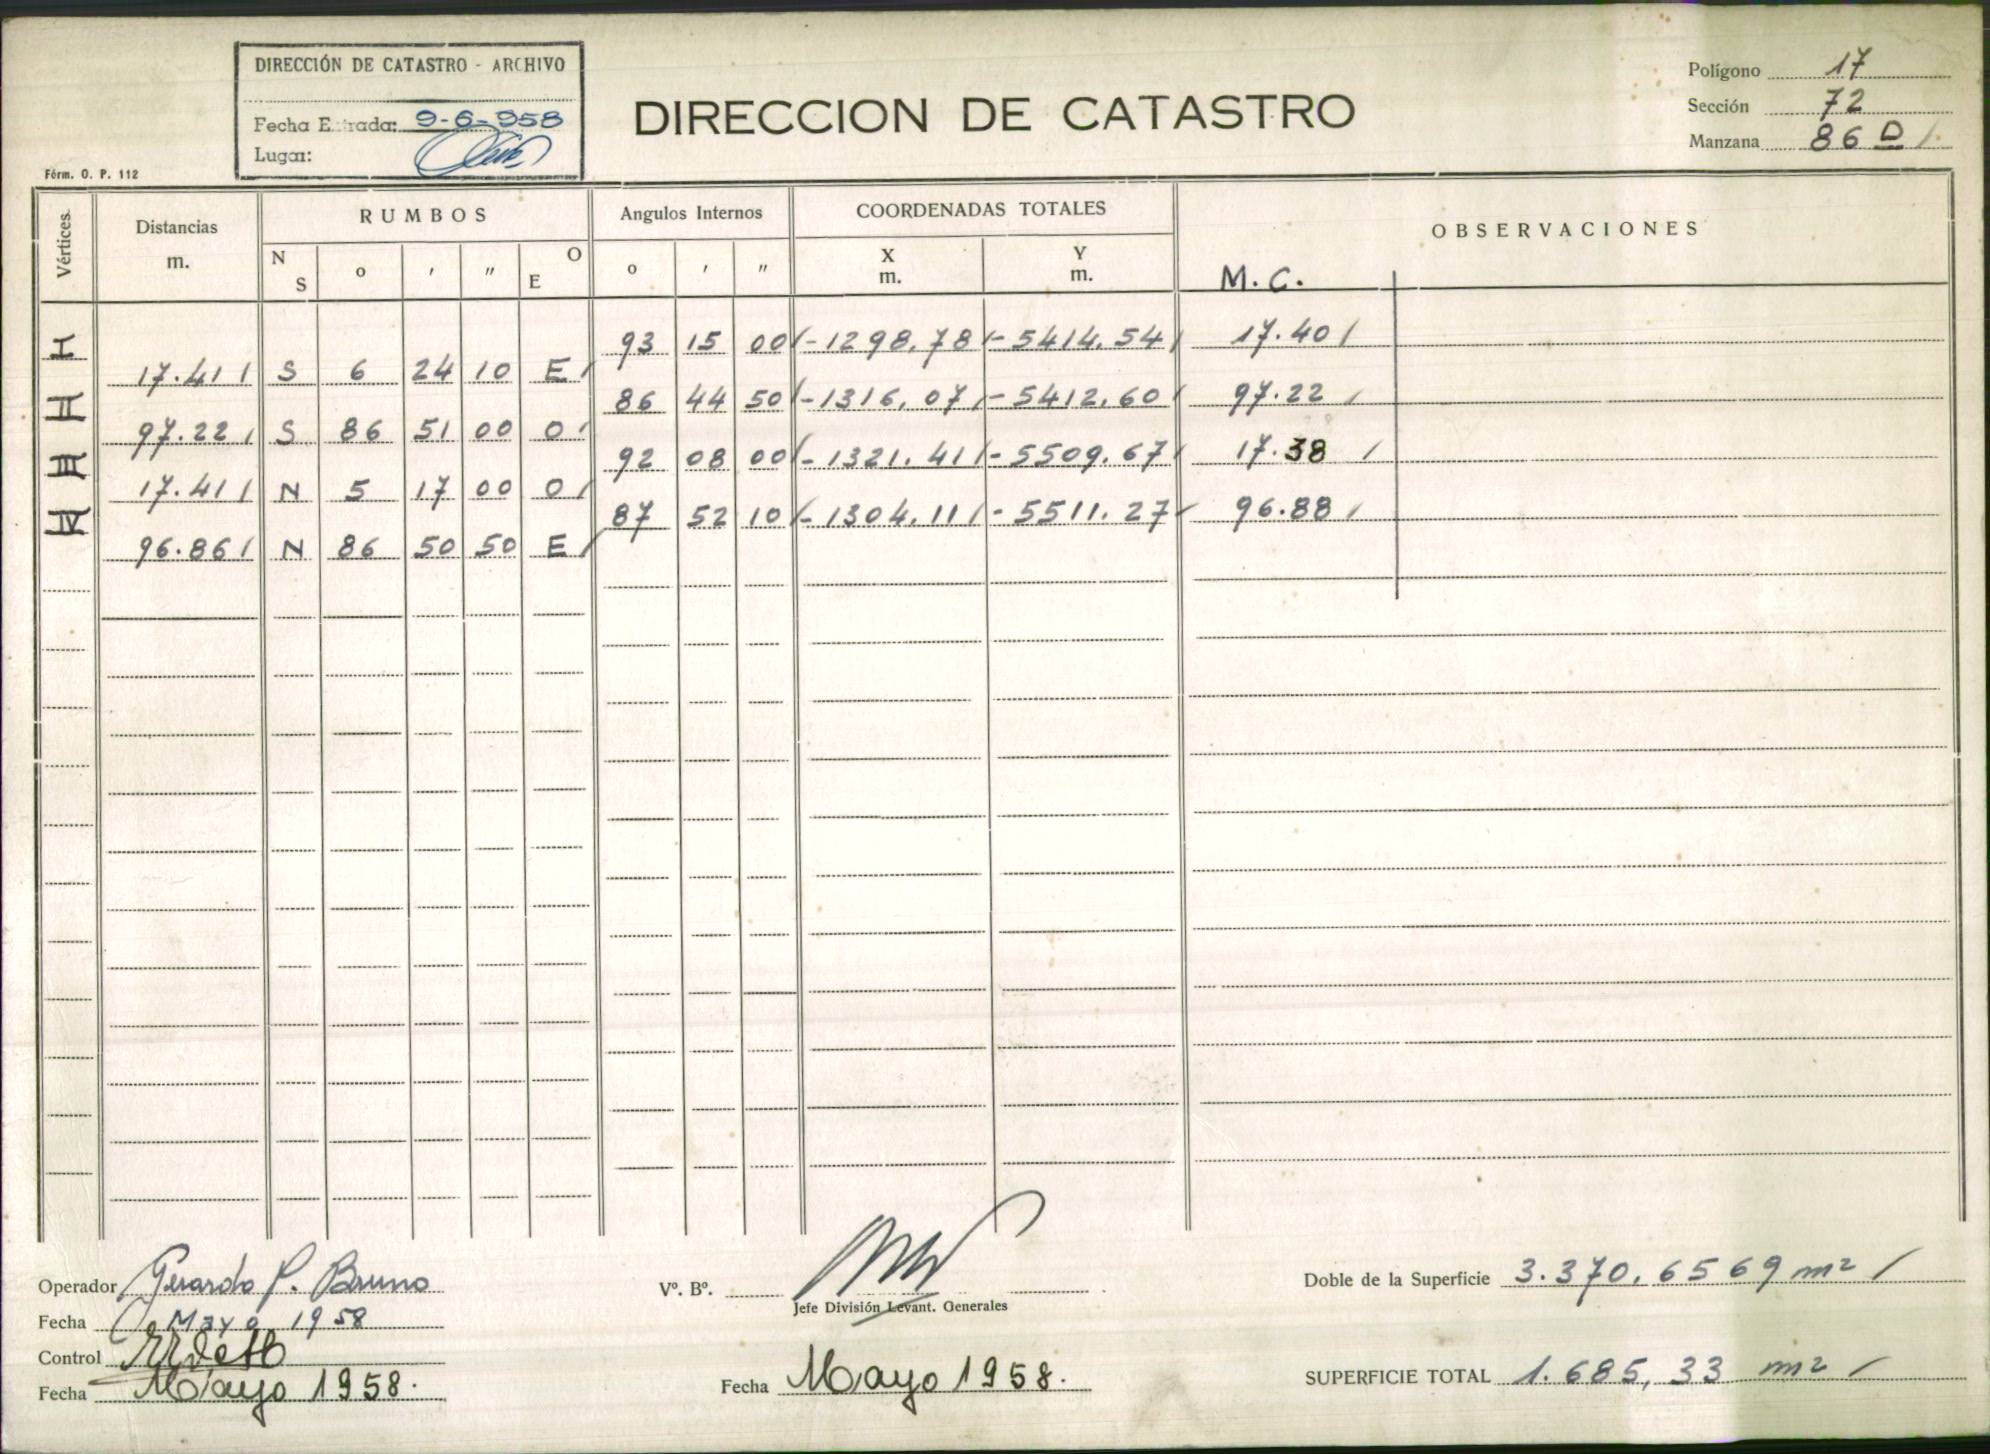 DIRECCIÓN DE CATASTRO - ARCHIVO
Fecha Entrada: 9-6-958
Lugar:
DIRECCION DE CATASTRO
Polígono 17
Sección 72
Manzana 86 D /
Fórm. O. P. 112
Vértices. Distancias m. RUMBOS Angulos Internos COORDENADAS TOTALES OBSERVACIONES
N S o ' " O E o ' " X m. Y m. M.C.
I 93 15 00 / -1298.78 / -5414.54 / 17.40 /
17.41 / S 6 24 10 E /
II 86 44 50 / -1316.07 / -5412.60 / 97.22 /
97.22 / S 86 51 00 O /
III 92 08 00 / -1321.41 / -5509.67 / 17.38 /
17.41 / N 5 17 00 O /
IV 87 52 10 / -1304.11 / -5511.27 / 96.88 /
96.86 / N 86 50 50 E /
Operador Gerardo P. Bruno
Fecha Mayo 1958
Control
Fecha Mayo 1958.
Vº. Bº.
Jefe División Levant. Generales
Fecha Mayo 1958.
Doble de la Superficie 3.370,6569 m² /
SUPERFICIE TOTAL 1.685,33 m² /